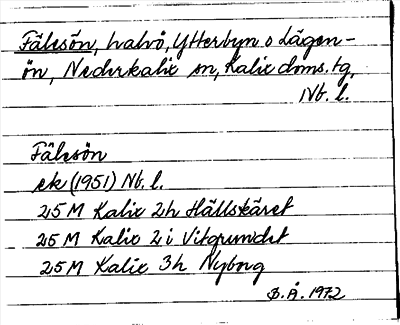 Fälesön, halvö, Ytterbyn o Lågen-
ön, Nederkalix sn, Kalix doms. tg,
Nb. l.
Fälesön
ek (1951) Nb. l.
25 M Kalix 2h Hällskäret
25 M Kalix 2i Vitgrundet
25 M Kalix 3h Nyborg
B. Å. 1972